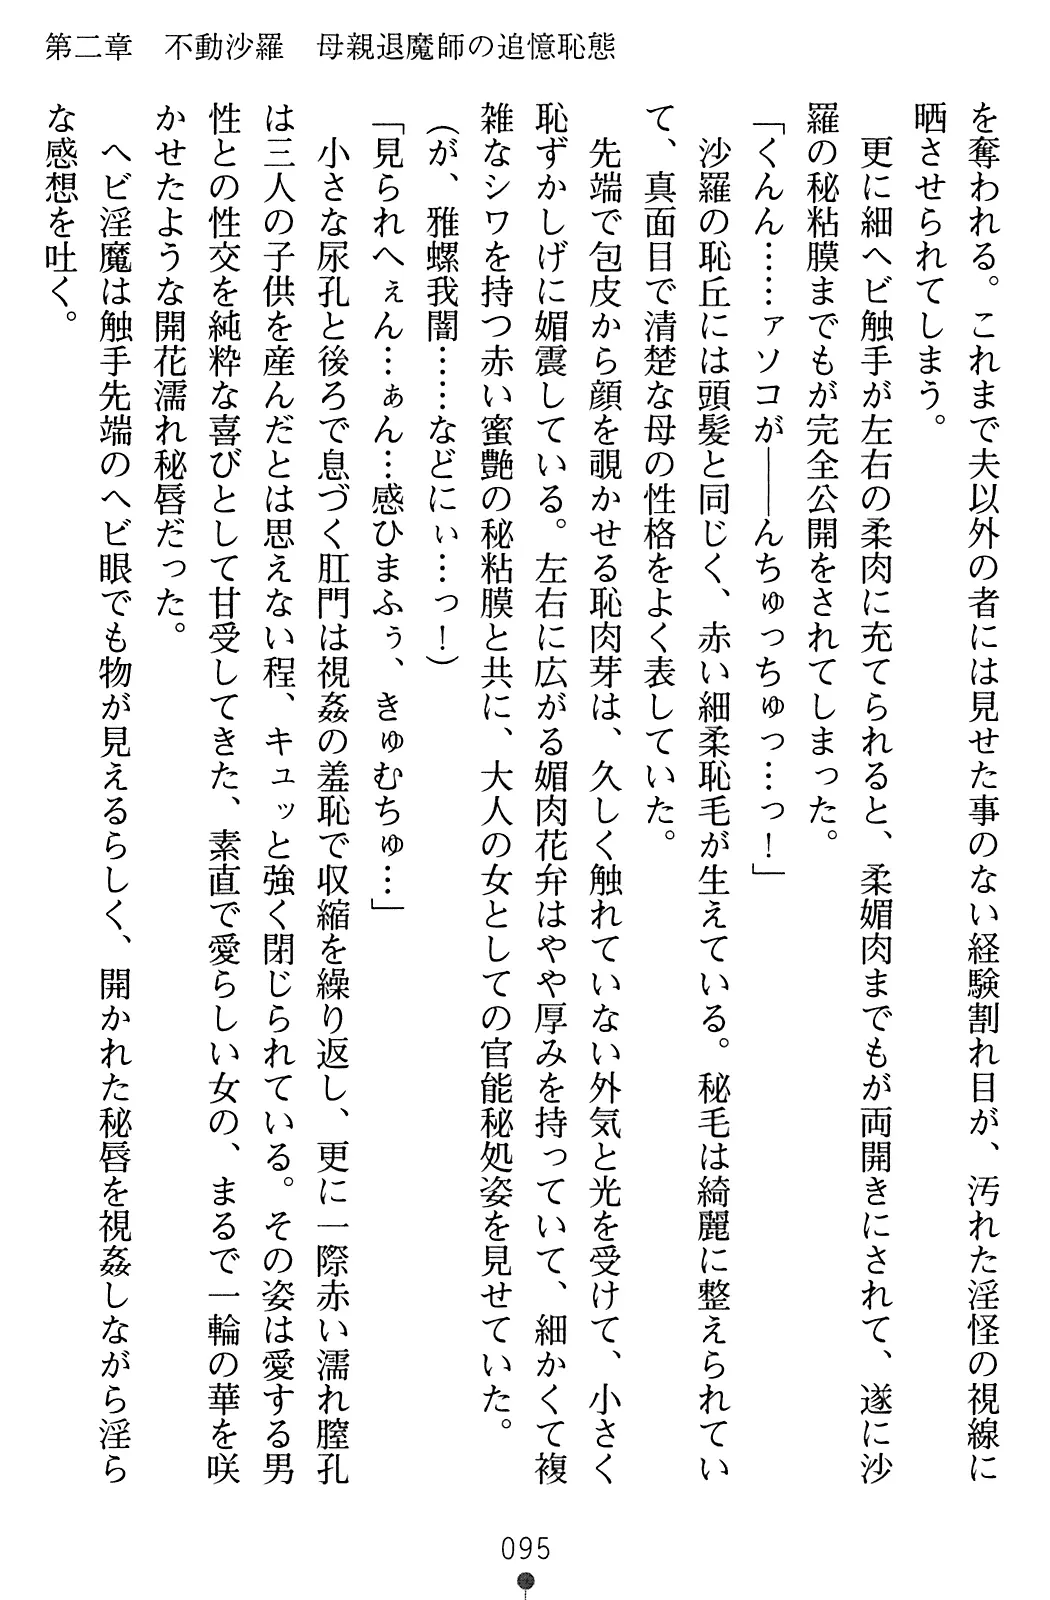 第二章　不動沙羅　母親退魔師の追憶恥態
を奪われる。これまで夫以外の者には見せた事のない経験割れ目が、汚れた淫怪の視線に
晒させられてしまう。
　更に細ヘビ触手が左右の柔肉に充てられると、柔媚肉までもが両開きにされて、遂に沙
羅の秘粘膜までもが完全公開をされてしまった。
「くんん……ァソコが――んちゅっちゅっ…っ！」
　沙羅の恥丘には頭髪と同じく、赤い細柔恥毛が生えている。秘毛は綺麗に整えられてい
て、真面目で清楚な母の性格をよく表していた。
　先端で包皮から顔を覗かせる恥肉芽は、久しく触れていない外気と光を受けて、小さく
恥ずかしげに媚震している。左右に広がる媚肉花弁はやや厚みを持っていて、細かくて複
雑なシワを持つ赤い蜜艶の秘粘膜と共に、大人の女としての官能秘処姿を見せていた。
（が、雅螺我闇……などにぃ…っ！）
「見られへぇん…ぁん…感ひまふぅ、きゅむちゅ…」
　小さな尿孔と後ろで息づく肛門は視姦の羞恥で収縮を繰り返し、更に一際赤い濡れ膣孔
は三人の子供を産んだとは思えない程、キュッと強く閉じられている。その姿は愛する男
性との性交を純粋な喜びとして甘受してきた、素直で愛らしい女の、まるで一輪の華を咲
かせたような開花濡れ秘唇だった。
　ヘビ淫魔は触手先端のヘビ眼でも物が見えるらしく、開かれた秘唇を視姦しながら淫ら
な感想を吐く。
095